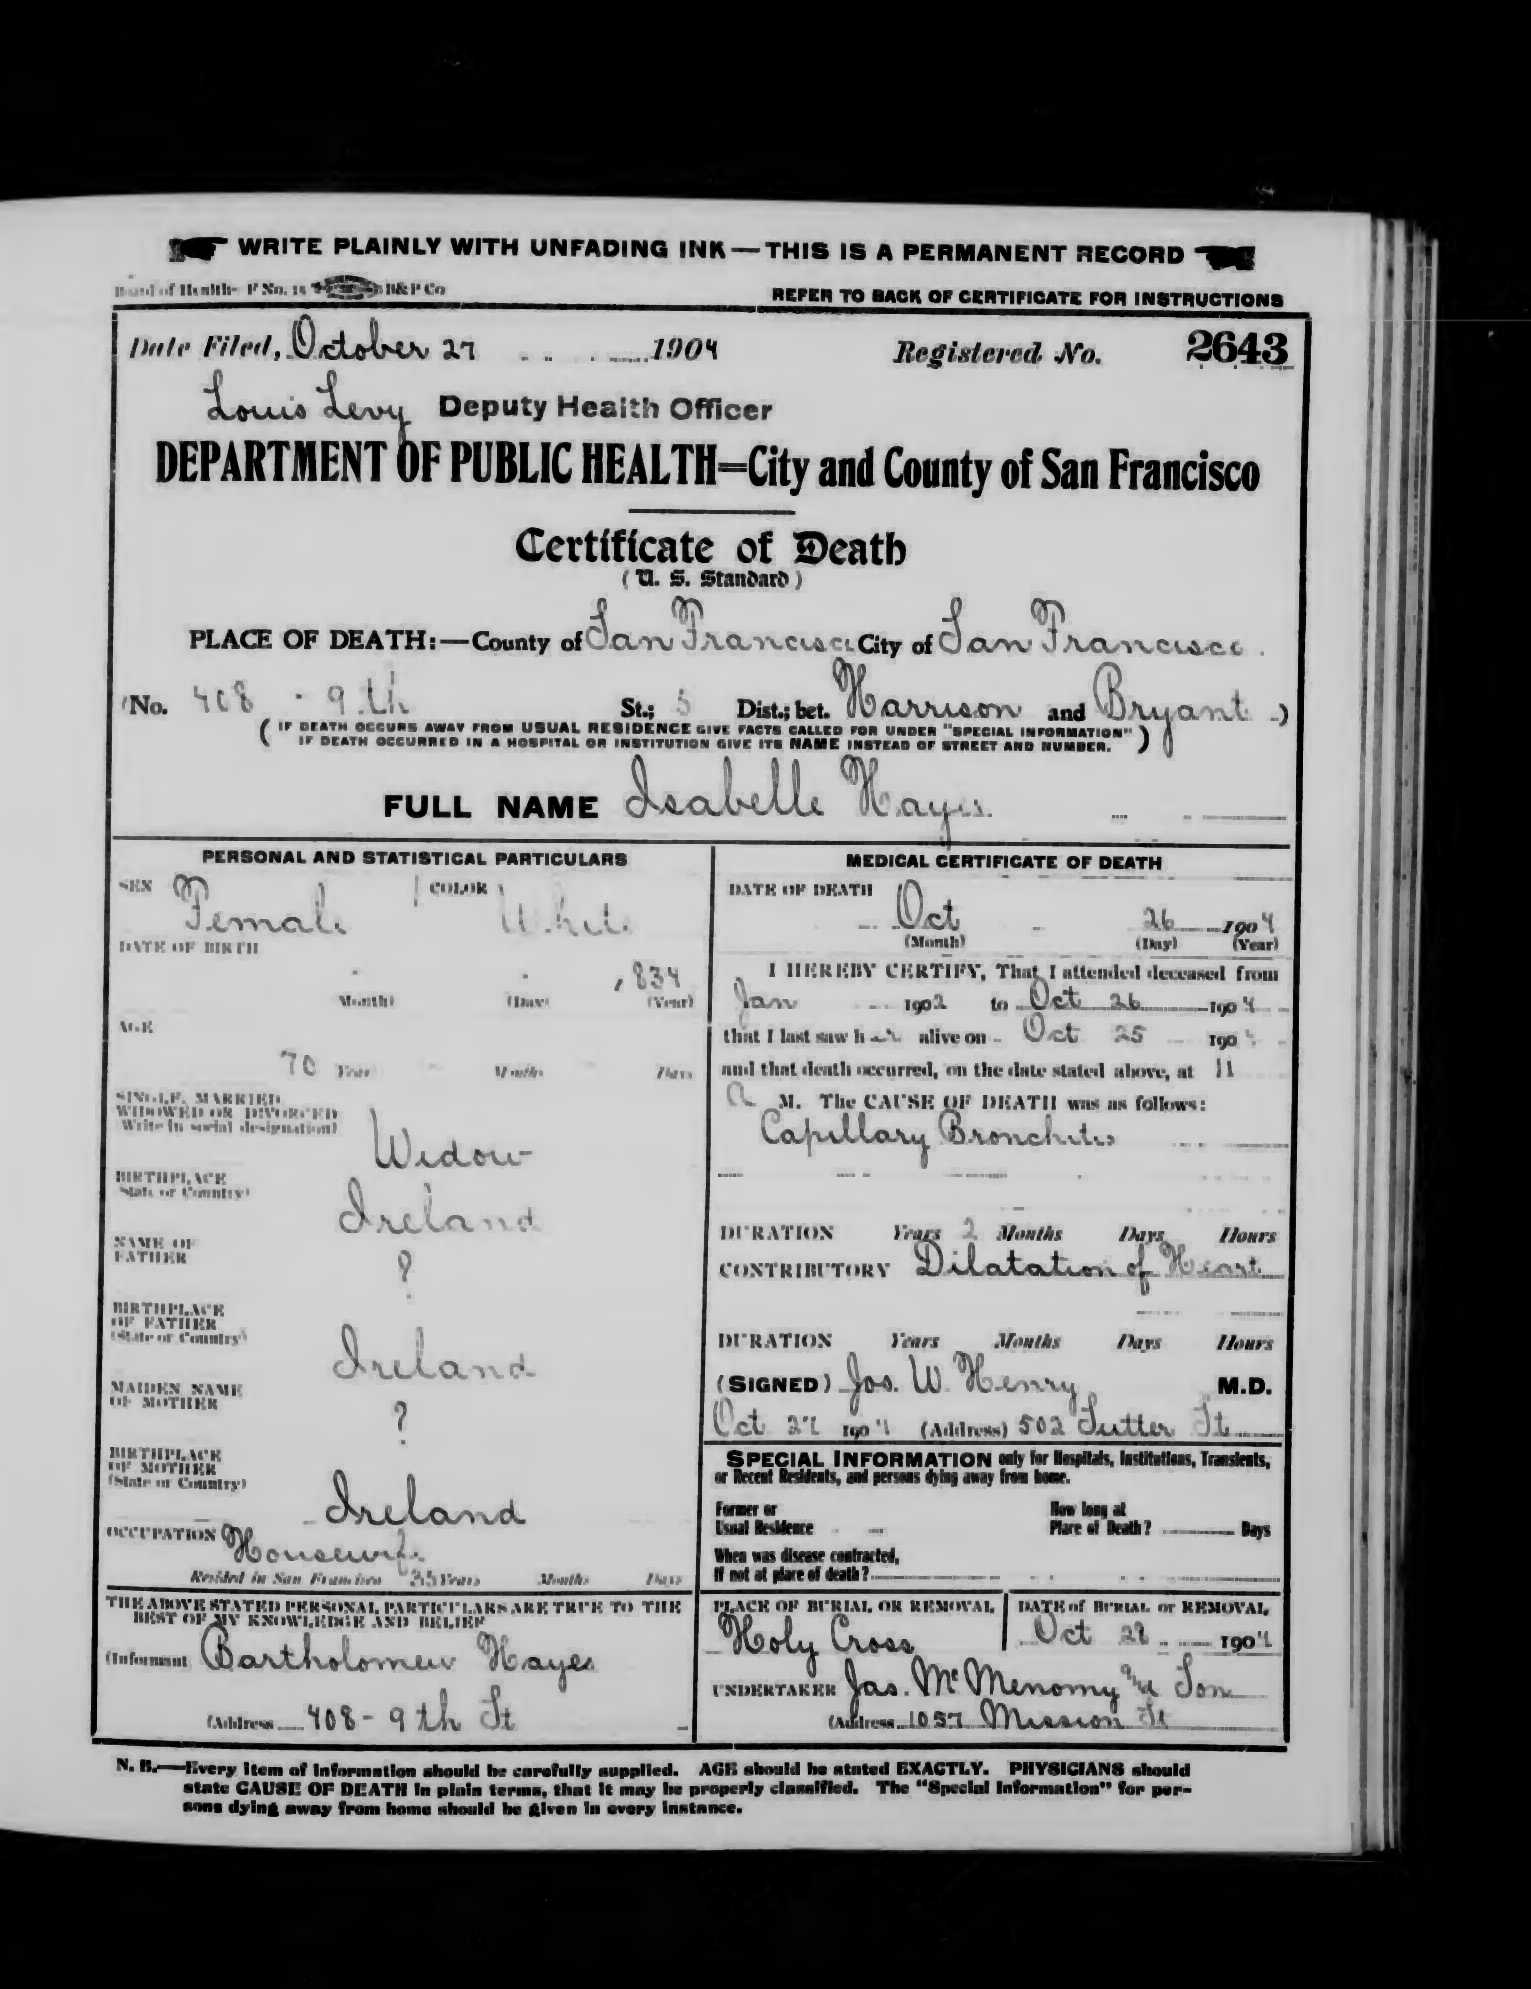 WRITE PLAINLY WITH UNFADING INK — THIS IS A PERMANENT RECORD
Board of Health—F No. 14 B&P Co
REFER TO BACK OF CERTIFICATE FOR INSTRUCTIONS
Date Filed, October 27 1904 Registered No. 2643
Louis Levy Deputy Health Officer
DEPARTMENT OF PUBLIC HEALTH=City and County of San Francisco
Certificate of Death
(U. S. Standard)
PLACE OF DEATH:—County of San Francisco City of San Francisco
(No. 408 - 9th St.; 5 Dist.; bet. Harrison and Bryant )
( IF DEATH OCCURS AWAY FROM USUAL RESIDENCE GIVE FACTS CALLED FOR UNDER "SPECIAL INFORMATION"
IF DEATH OCCURRED IN A HOSPITAL OR INSTITUTION GIVE ITS NAME INSTEAD OF STREET AND NUMBER. )
FULL NAME Isabelle Hayes
PERSONAL AND STATISTICAL PARTICULARS
SEX Female COLOR White
DATE OF BIRTH
1834
(Month) (Day) (Year)
AGE
70 Years Months Days
SINGLE, MARRIED,
WIDOWED OR DIVORCED
(Write in social designation)
Widow
BIRTHPLACE
(State or Country)
Ireland
NAME OF
FATHER
?
BIRTHPLACE
OF FATHER
(State or Country)
Ireland
MAIDEN NAME
OF MOTHER
?
BIRTHPLACE
OF MOTHER
(State or Country)
Ireland
OCCUPATION Housewife
Resided in San Francisco 35 Years Months Days
THE ABOVE STATED PERSONAL PARTICULARS ARE TRUE TO THE
BEST OF MY KNOWLEDGE AND BELIEF
(Informant Bartholomew Hayes
(Address 408 - 9th St
MEDICAL CERTIFICATE OF DEATH
DATE OF DEATH
Oct 26 1904
(Month) (Day) (Year)
I HEREBY CERTIFY, That I attended deceased from
Jan 1902 to Oct 26 1904
that I last saw her alive on Oct 25 1904
and that death occurred, on the date stated above, at 11
A M. The CAUSE OF DEATH was as follows:
Capillary Bronchitis
DURATION Years 2 Months Days Hours
CONTRIBUTORY Dilatation of Heart
DURATION Years Months Days Hours
(SIGNED) Jos. W. Henry M.D.
Oct 27 1904 (Address) 502 Sutter St
SPECIAL INFORMATION only for Hospitals, Institutions, Transients,
or Recent Residents, and persons dying away from home.
Former or
Usual Residence
How long at
Place of Death? Days
When was disease contracted,
If not at place of death?
PLACE OF BURIAL OR REMOVAL
Holy Cross
DATE of BURIAL or REMOVAL
Oct 28 1904
UNDERTAKER Jas. McMenomy and Son
(Address 1057 Mission St
N. B.—Every item of information should be carefully supplied. AGE should be stated EXACTLY. PHYSICIANS should
state CAUSE OF DEATH in plain terms, that it may be properly classified. The "Special Information" for per-
sons dying away from home should be given in every instance.